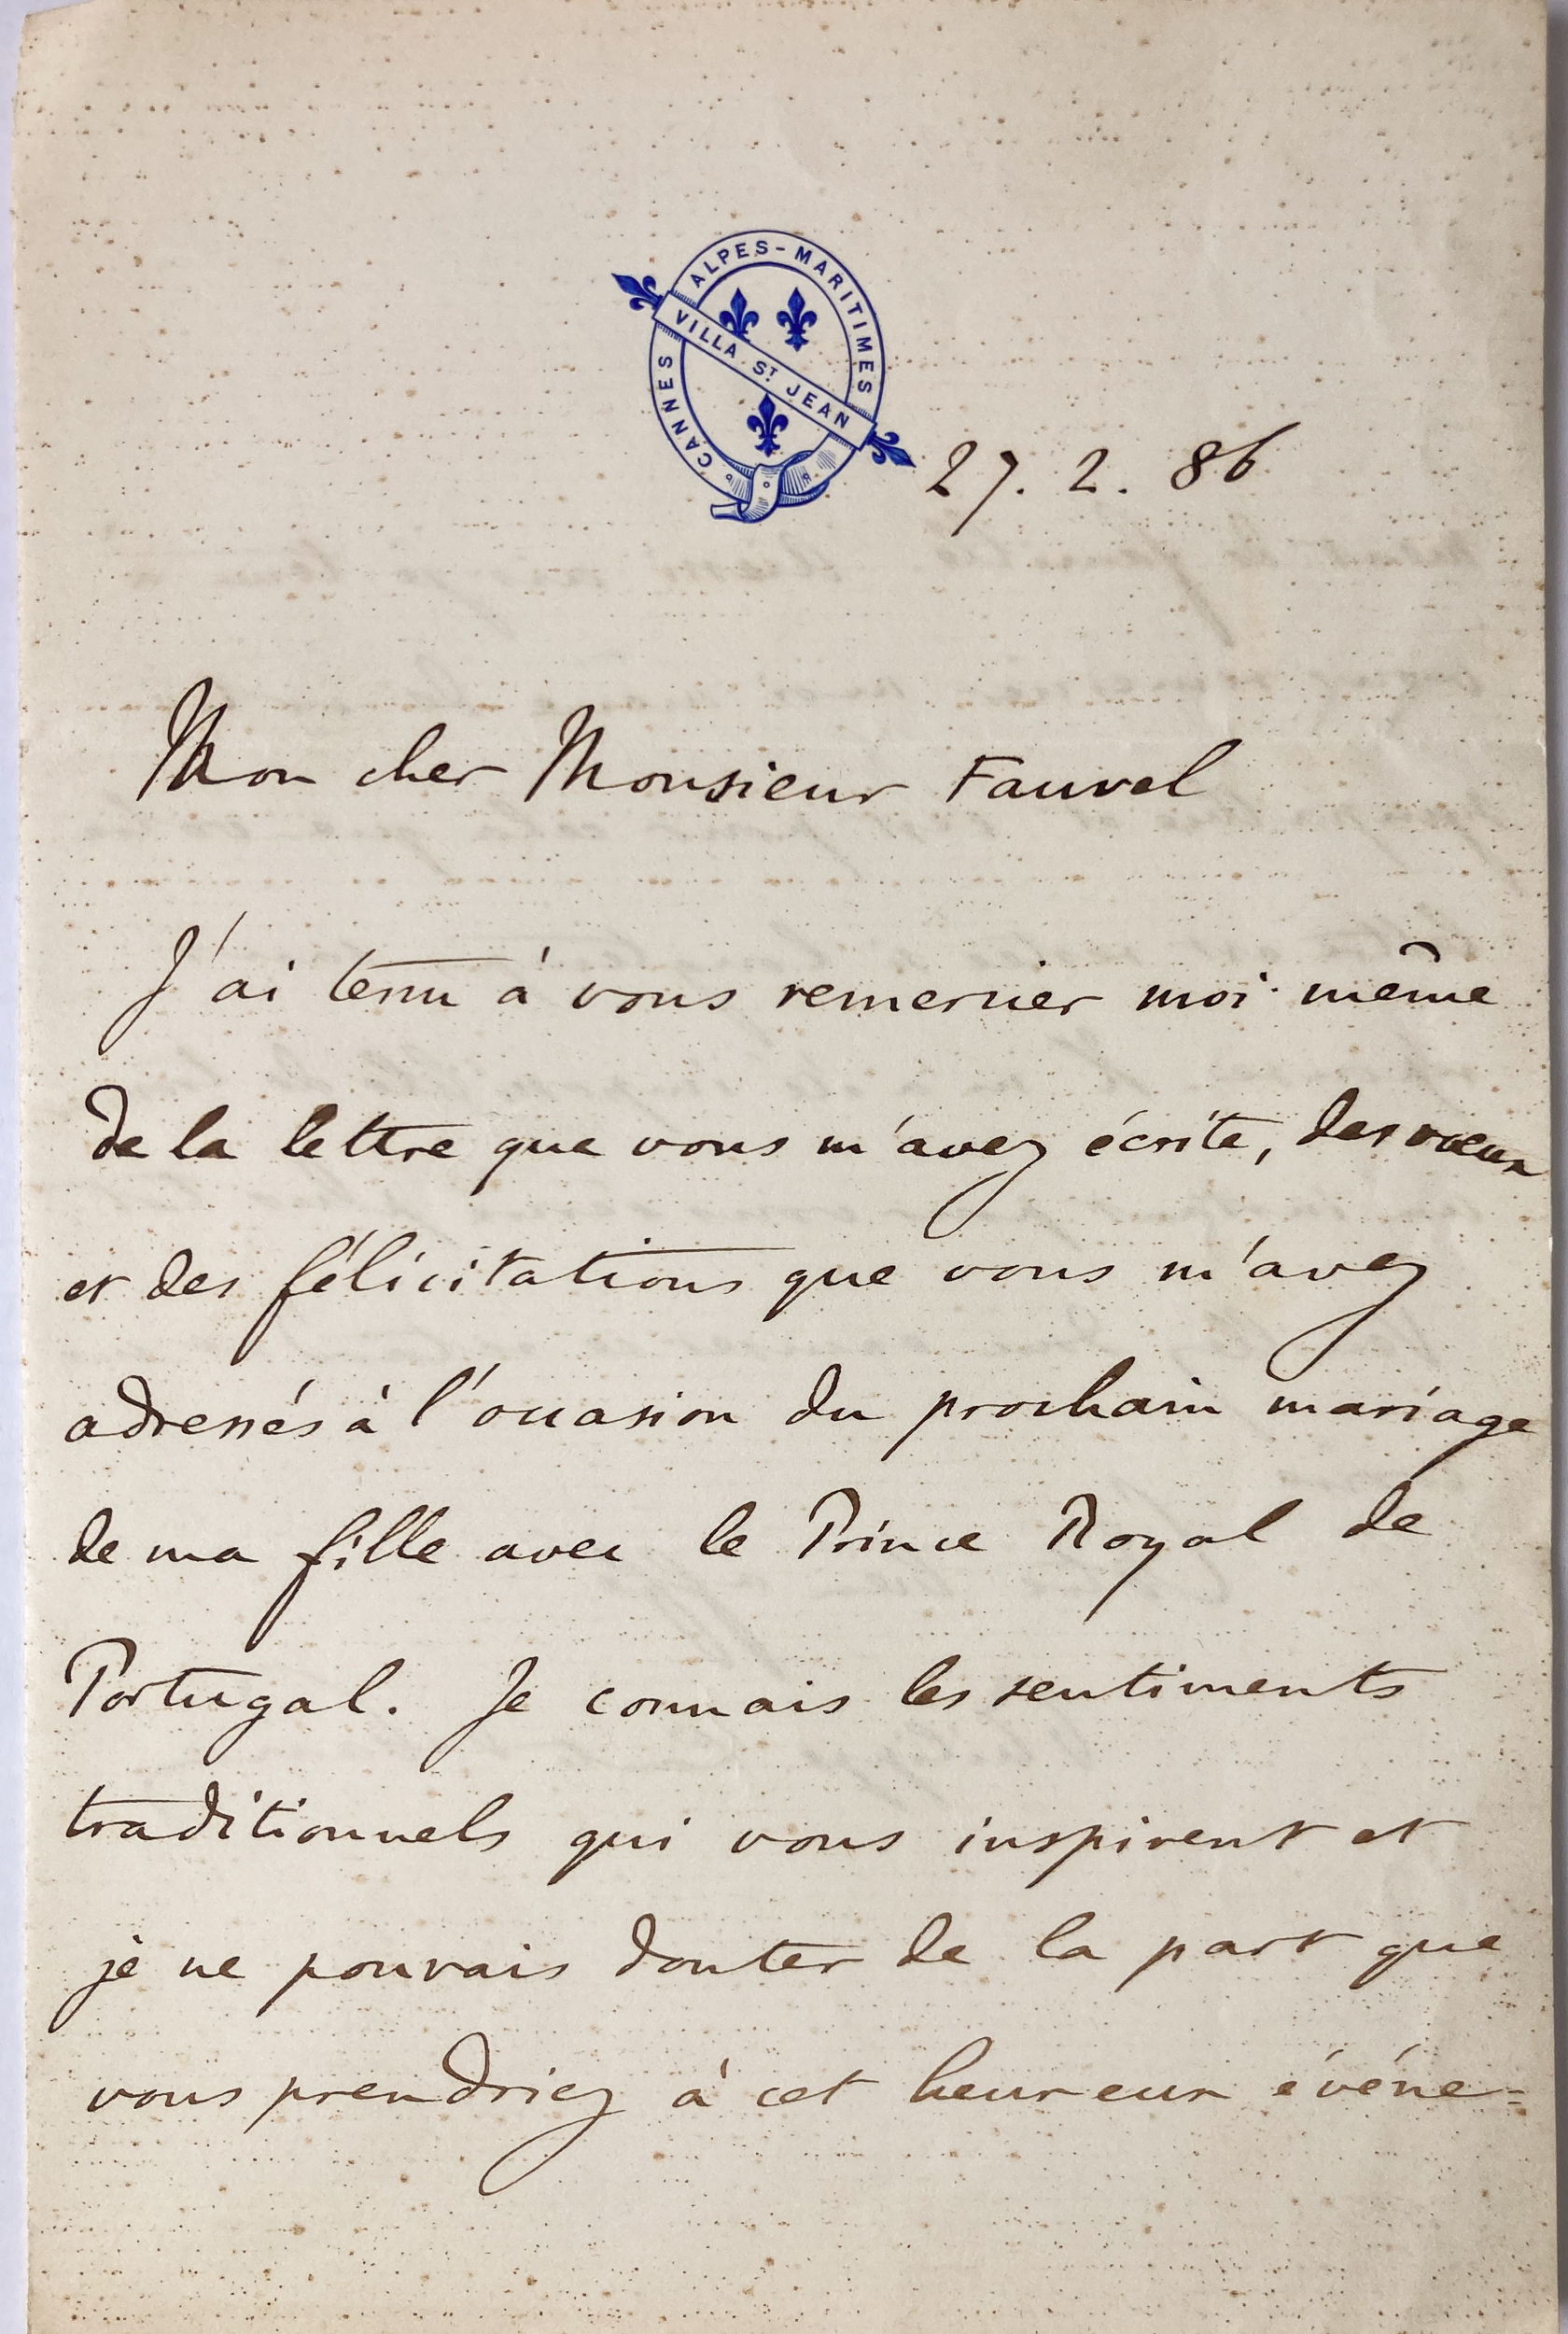 ALPES-MARITIMES
VILLA ST JEAN
CANNES
27. 2. 86
Mon cher Monsieur Fauvel
J'ai tenu à vous remercier moi-même
de la lettre que vous m'avez écrite, des vœux
et des félicitations que vous m'avez
adressés à l'occasion du prochain mariage
de ma fille avec le Prince Royal de
Portugal. Je connais les sentiments
traditionnels qui vous inspirent et
je ne pouvais douter de la part que
vous prendriez à cet heureux événe=